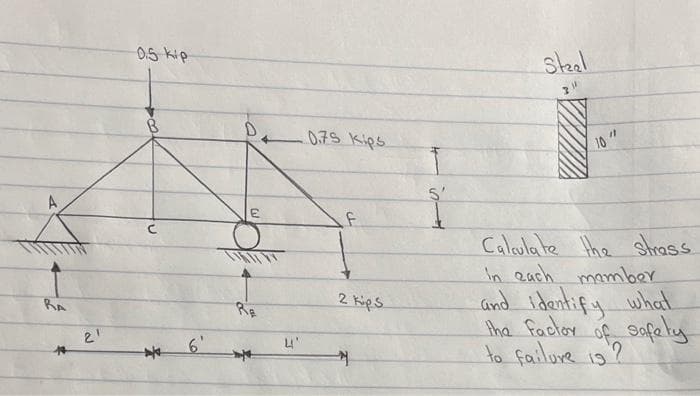 0.5 kip
Steel
3"
10"
B
D
0.75 kips
5'
A
C
E
F
RA
RE
2 kips
2'
6'
4'
Calculate the stress
in each member
and identify what
the factor of safety
to failure is?